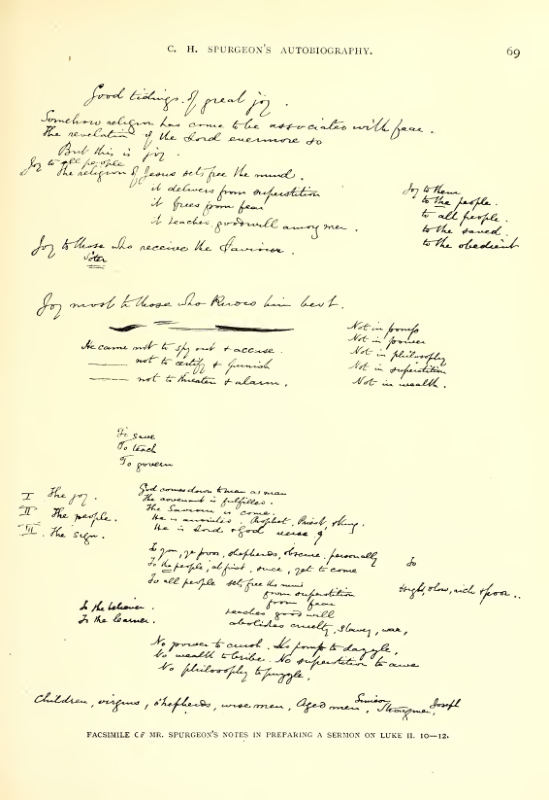 C. H. SPURGEON'S AUTOBIOGRAPHY. 69
Good tidings of great joy.
Somehow religion has come to be associated with fear.
The revelation of the Lord evermore so
But this is joy.
Joy to all people
The religion of Jesus sets free the mind.
it delivers from superstition
it frees from fear
it teaches goodwill among men.
Joy to them
to the people.
to all people.
to the saved.
to the obedient
Joy to those who receive the Saviour.
Joy most to those who know him best.
He came not to spy out & accuse.
—— not to & punish
—— not to threaten & alarm.
Not in pomp
Not in power
Not in philosophy
Not in superstition
Not in wealth.
To save
To teach
To govern
I The joy.
II The people.
III. The sign.
God comes down to men as man
The covenant is fulfilled.
The Saviour is come.
He is anointed. Prophet, Priest, King.
He is Lord & God verse 9
To you, ye poor, shepherds, obscure, personally
To the people, at first, once, yet to come
To all people sets free the mind
from superstition
from fear
teaches good will
abolishes cruelty, slavery, war,
To
high, low, rich & poor..
To the believer.
To the learner.
No power to crush. No pomp to dazzle,
No wealth to bribe. No superstition to awe
No philosophy to puzzle.
Children, virgins, shepherds, wise men, Aged men, Simeon, Joseph
FACSIMILE OF MR. SPURGEON'S NOTES IN PREPARING A SERMON ON LUKE II. 10—12.